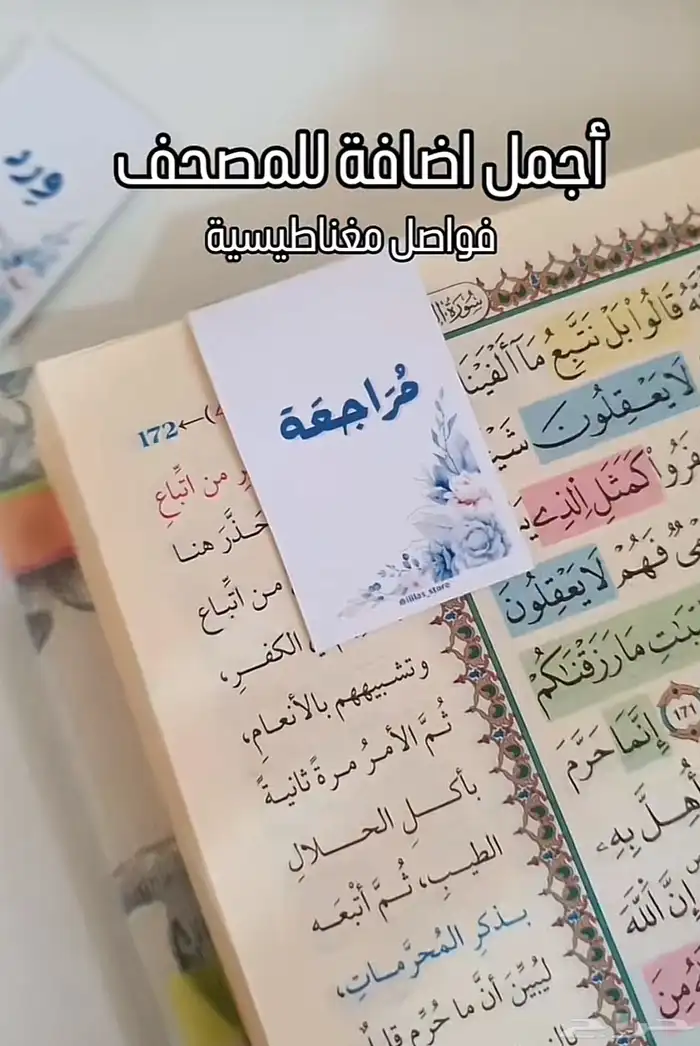 أجمل اضافة للمصحف
فواصل مغناطيسية
وِرد
مُرَاجعَة
@lilas_store
سُورَةُ
قَالُواْ بَلْ نَتَّبِعُ مَا أَلْفَيْنَا
لَا يَعْقِلُونَ شَيْ
كَمَثَلِ اِلذِے يَ
فَهُمْ لَا يَعْقِلُونَ
مَا رَزَقْنَٰكُمْ
171
إِنَّمَا حَرَّمَ
أُهِلَّ بِهِۦ
إِنَّ اَللَّهَ
172←(
من اتِّباعِ
حَذَّرَ هنا
من اتِّباع
الكفرِ،
وتشبيههم بالأنعامِ،
ثُمَّ الأمرُ مرةً ثانيةً
بأكلِ الحلالِ
الطيبِ، ثُمَّ أتْبَعَه
بذكرِ المُحرَّماتِ،
ليُبيِّنَ أنَّ ما حُرِّم
حراج